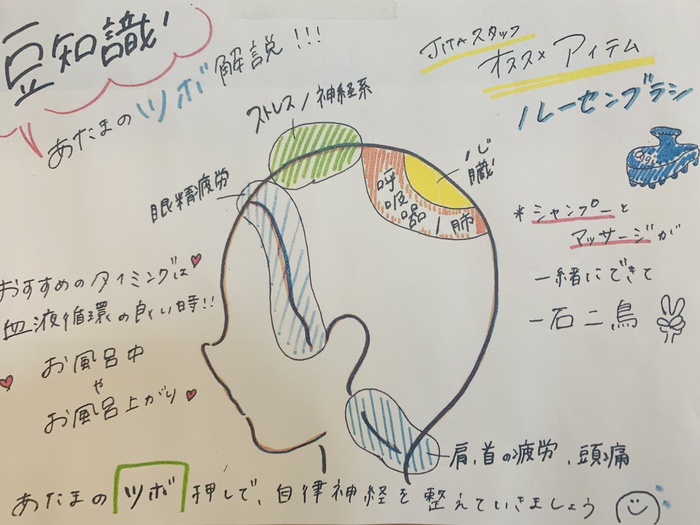 豆知識
あたまのツボ解説!!!
JITAスタッフ
オススメ アイテム
ルーセンブラシ
ストレス/神経系
眼精疲労
心臓
呼吸器/肺
*シャンプーと
マッサージが
一緒にできて
一石二鳥
おすすめのタイミングは
血液循環の良い時!!
お風呂中
や
お風呂上がり
肩、首の疲労、頭痛
あたまのツボ押しで、自律神経を整えていきましょう